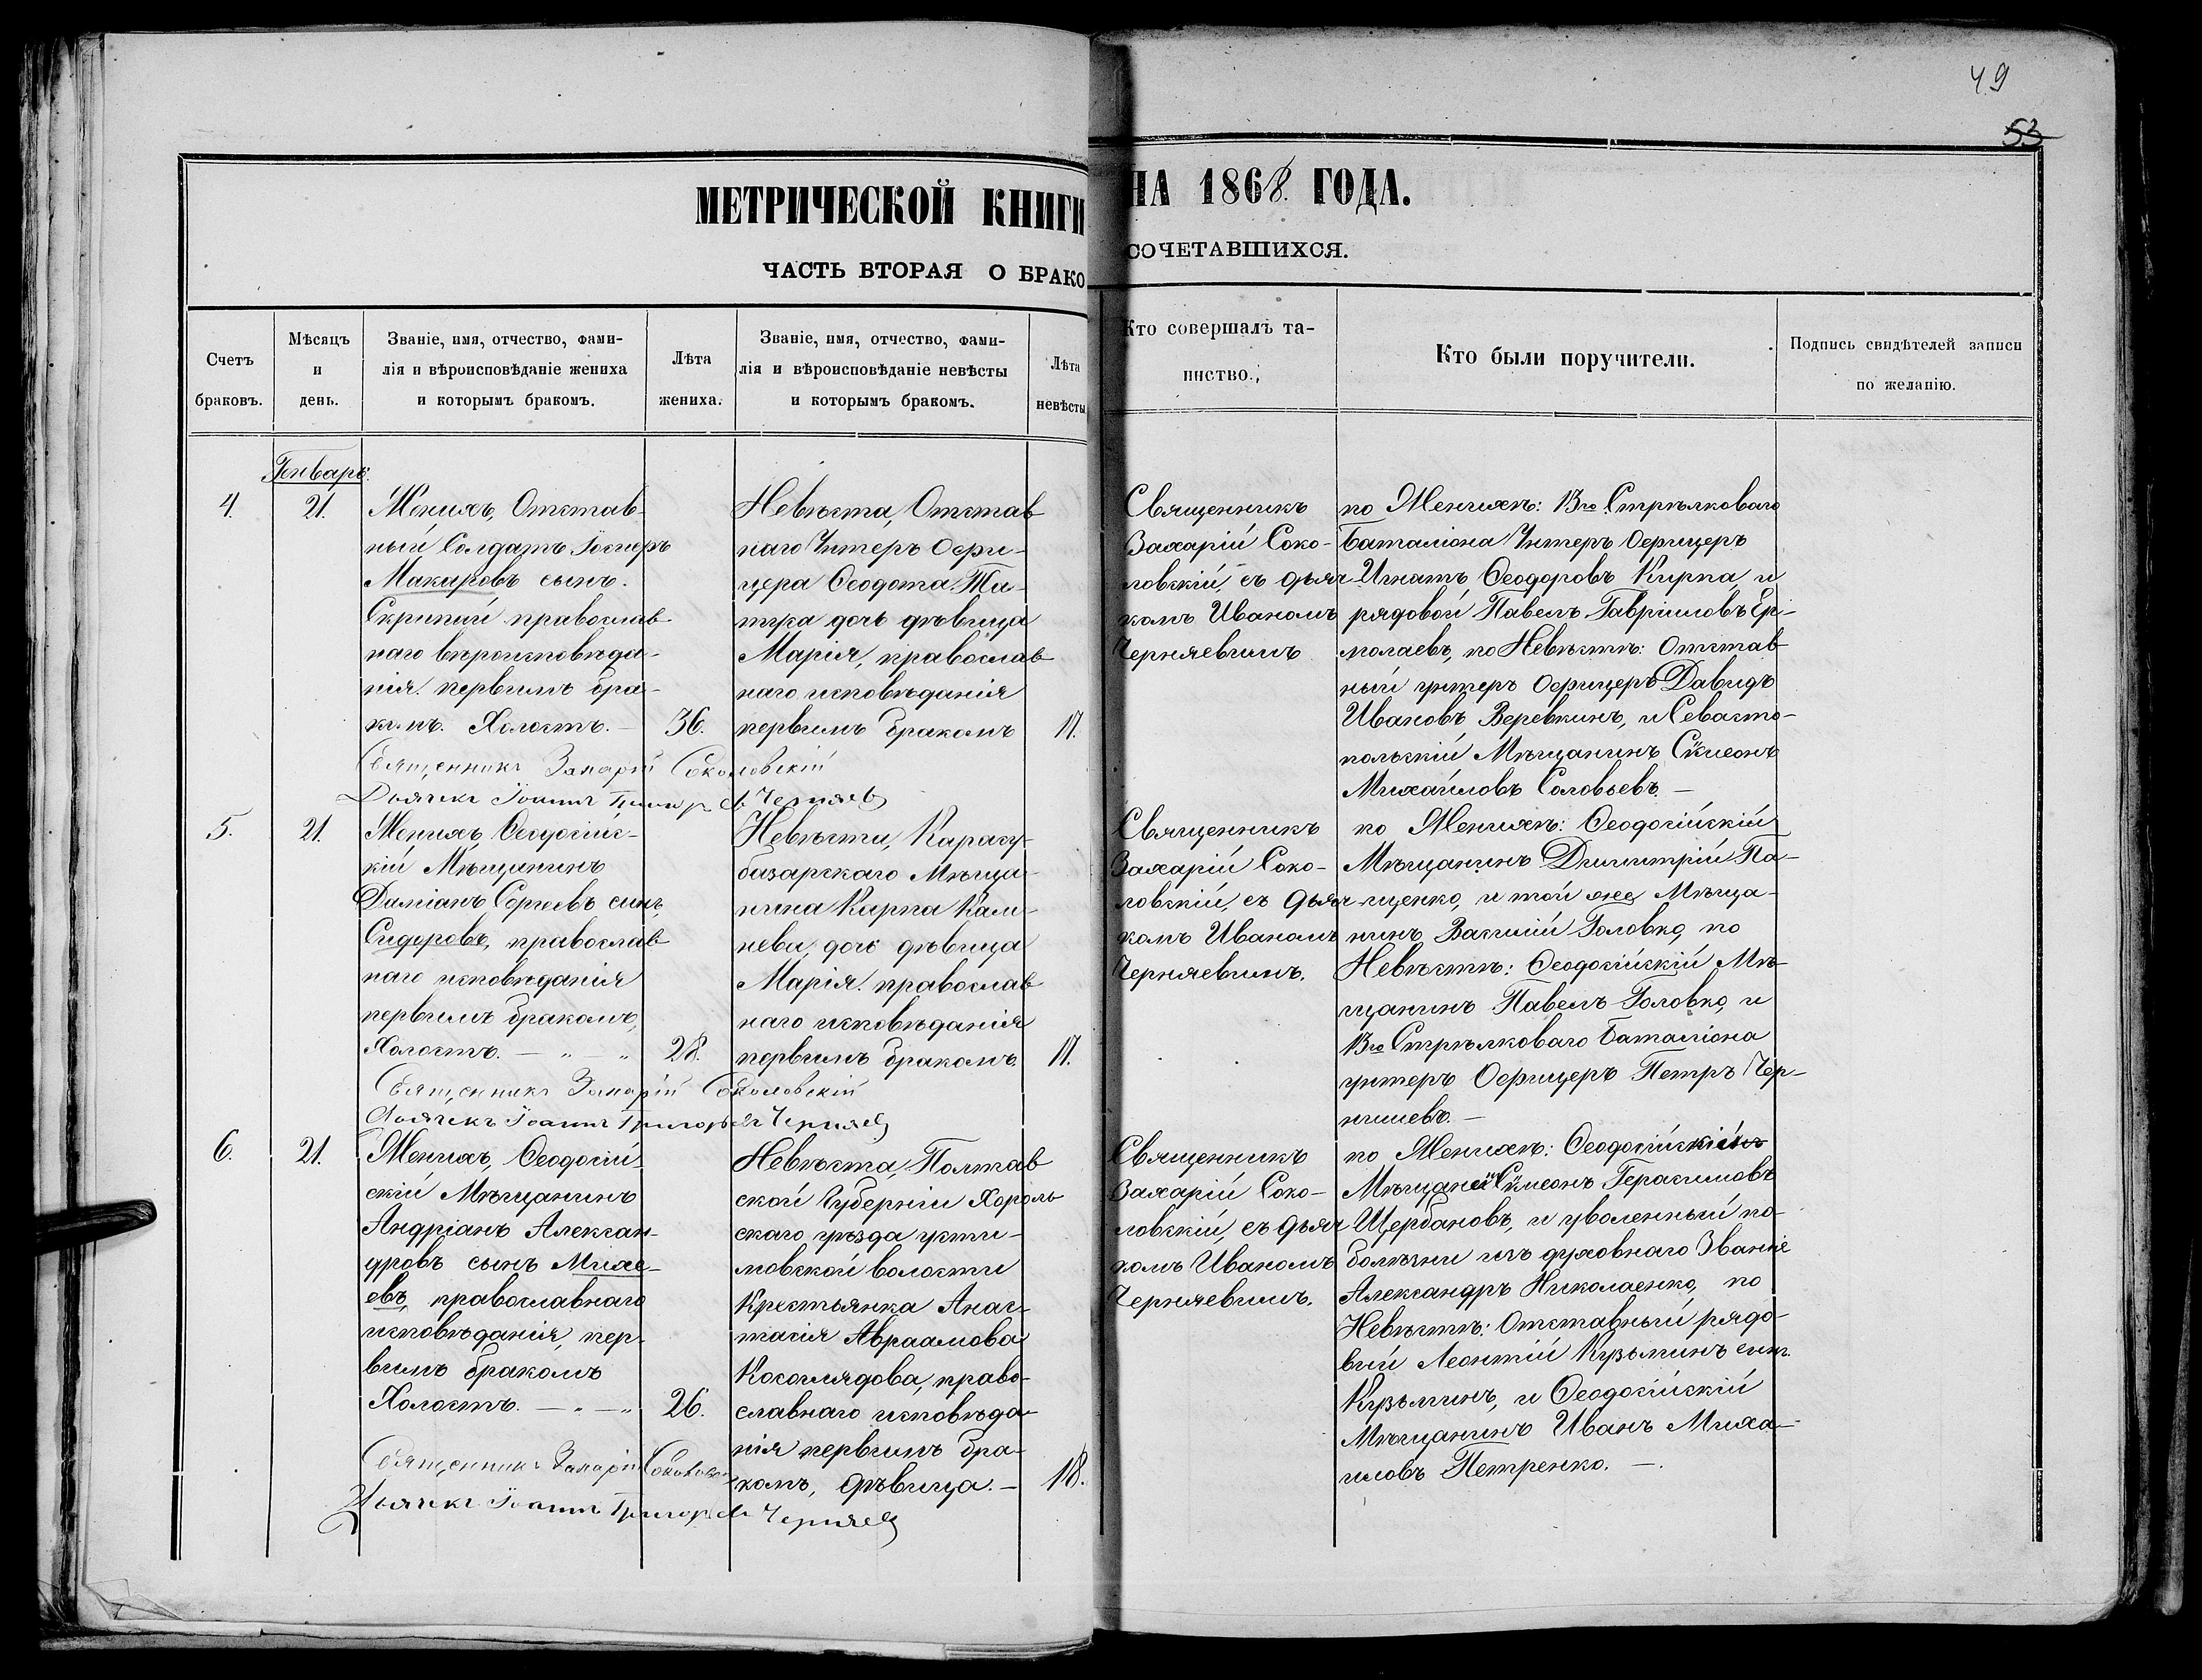 49
53
МЕТРИЧЕСКОЙ КНИГИ НА 1868 ГОДА.
ЧАСТЬ ВТОРАЯ О БРАКОСОЧЕТАВШИХСЯ.
Счетъ
браковъ.
Мѣсяцъ
и
день.
Званіе, имя, отчество, фами-
лія и вѣроисповѣданіе жениха
и которымъ бракомъ.
Лѣта
жениха.
Званіе, имя, отчество, фами-
лія и вѣроисповѣданіе невѣсты
и которымъ бракомъ.
Лѣта
невѣсты
Кто совершалъ та-
инство.
Кто были поручители.
Подпись свидѣтелей записи
по желанію.
Генварь.
4.
21.
Женихъ, Отстав-
ный Солдатъ
Макаровъ сынъ.
Скрипай православ-
наго вѣроисповѣда-
нія. первымъ бра-
комъ. Холостъ. –
36.
Невѣста, Отстав
наго Унтеръ Офи-
цера Ѳеодота Ти-
тка дочь дѣвица
Марія, православ-
наго исповѣданія
первымъ бракомъ
17.
Священникъ
Захарій Соко-
ловскій, съ дьяч-
комъ Иваномъ
Черняевымъ
по Женихѣ: 13го Стрѣлковаго
Баталіона Унтеръ Офицеръ
Игнатъ Ѳеодоровъ Кирпа, и
рядовой Павелъ Гавріиловъ Ер-
молаевъ, по Невѣстѣ: Отстав
ный унтеръ Офицеръ Давидъ
Ивановъ Веревкинъ, и Севасто-
польскій Мѣщанинъ Сѵмеонъ
Михайловъ Соловьевъ. –
Священникъ Захарій Соколовскій
Дьячекъ Іоаннъ Григорьевъ Черняев
5.
21.
Женихъ, Ѳеодосійс-
кій Мѣщанинъ
Даміанъ Сергѣевъ сынъ,
Сидоровъ, православ-
наго исповѣданія
первымъ бракомъ,
Холостъ. – „ – „
28.
Невѣста, Карасу-
базарскаго Мѣща-
нина Карпа Кали-
нева, дочь дѣвица
Марія. православ-
наго исповѣданія
первымъ бракомъ.
17.
Священникъ
Захарій Соко-
ловскій, съ дьяч-
комъ Иваномъ
Черняевымъ.
по Женихѣ: Ѳеодосійскій
Мѣщанинъ Димитрій Па-
щенко, и той же Мѣща-
нинъ Василій Головко, по
Невѣстѣ: Ѳеодосійскій Мѣ-
щанинъ Павелъ Головко, и
13го Стрѣлковаго Баталіона
унтеръ Офицеръ Петръ Чер-
нышевъ. –
Священникъ Захарій Соколовскій
Дьячекъ Іоаннъ Григорьевъ Черняев
6.
21.
Женихъ, Ѳеодосій-
скій Мѣщанинъ
Андріанъ Алексан-
дровъ сынъ Михе-
евъ, православнаго
исповѣданія, пер-
вымъ бракомъ
Холостъ. – „ – „
26.
Невѣста, Полтав
ской Губерніи Хороль
скаго уѣзда усти-
мовской волости
Крестьянка Анас-
тасія Авраамова
Косоглядова, право-
славнаго исповѣда-
нія первымъ бра-
комъ, дѣвица. –
18.
Священникъ
Захарій Соко-
ловскій, съ дьяч
комъ Иваномъ
Черняевымъ.
по Женихѣ: Ѳеодосійскій
Сѵмеонъ Герасимовъ
Щербановъ, и уволенный по
болѣзни изъ духовнаго Званія
Александръ Николаенко, по
Невѣстѣ: Отставный рядо-
вый Леонтій Кузьминъ сынъ
Кузьминъ, и Ѳеодосійскій
Мѣщанинъ Иванъ Миха-
иловъ Петренко. –
Священникъ Захарій Соколовскій
Дьячекъ Іоаннъ Григорьевъ Черняев